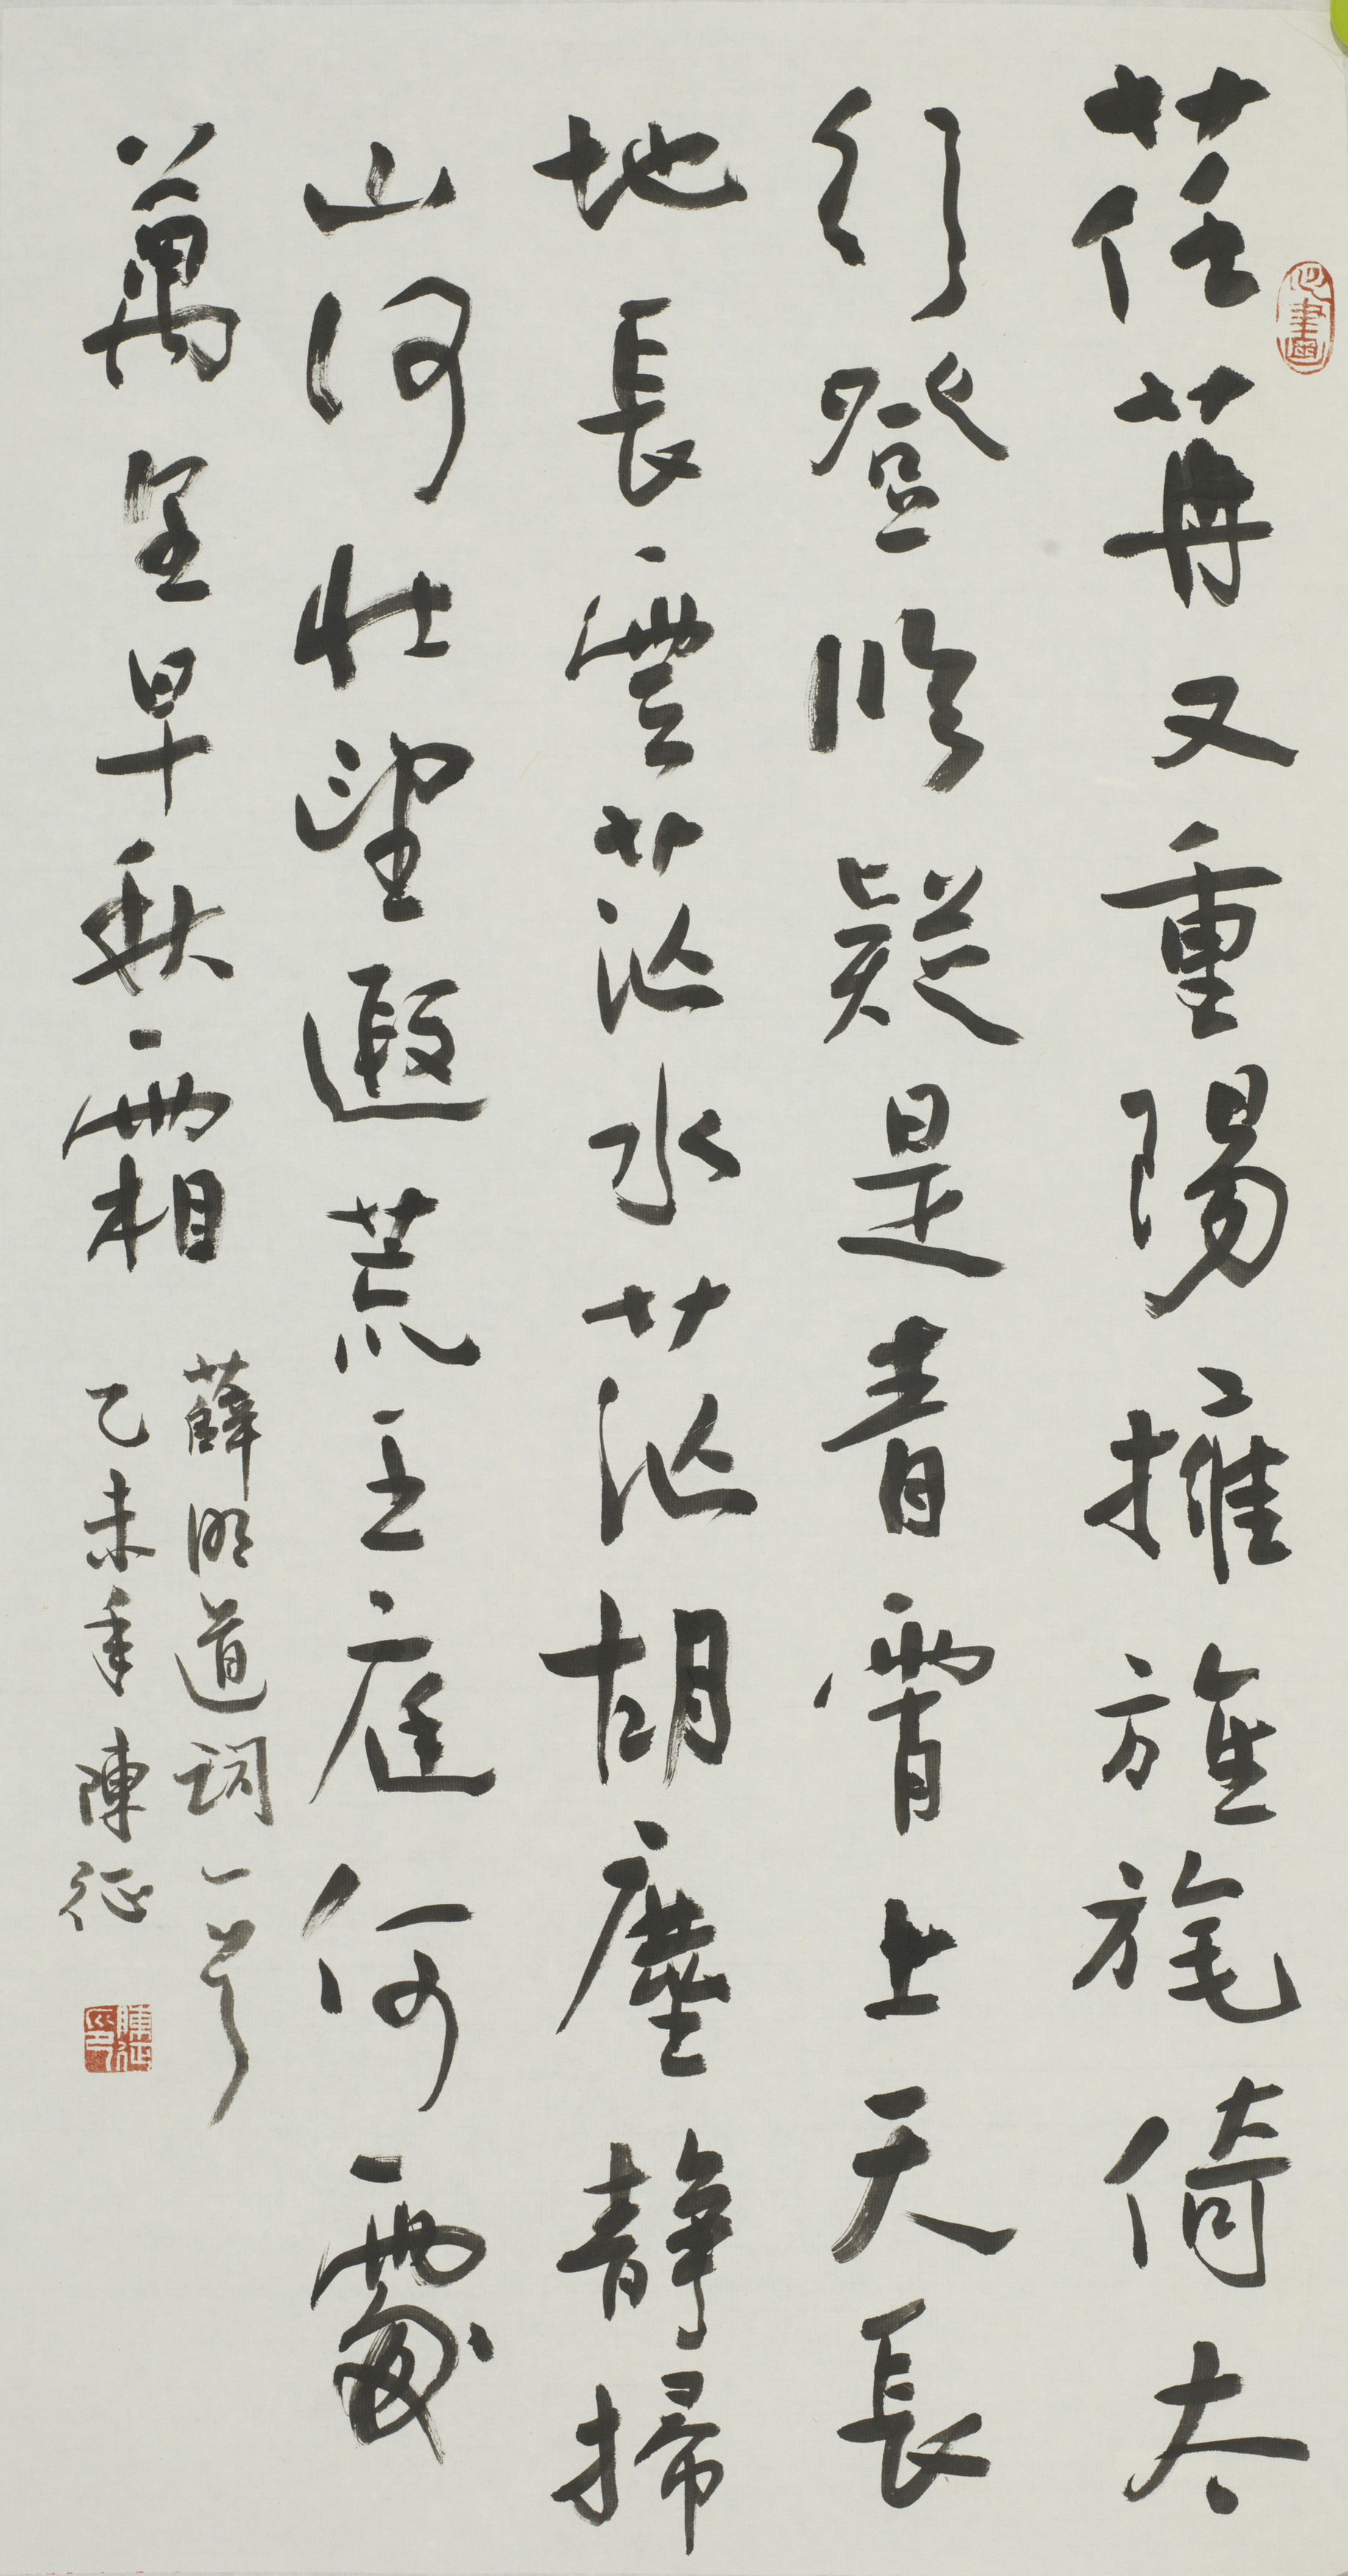 荏苒又重陽擁旌旄倚太
行登臨疑是青霄上天長
地長雲茫水茫胡塵靜掃
山河壯望遐荒王庭何處
萬里早秋霜
薛昭道詞一首
乙未年陳征
陳征印